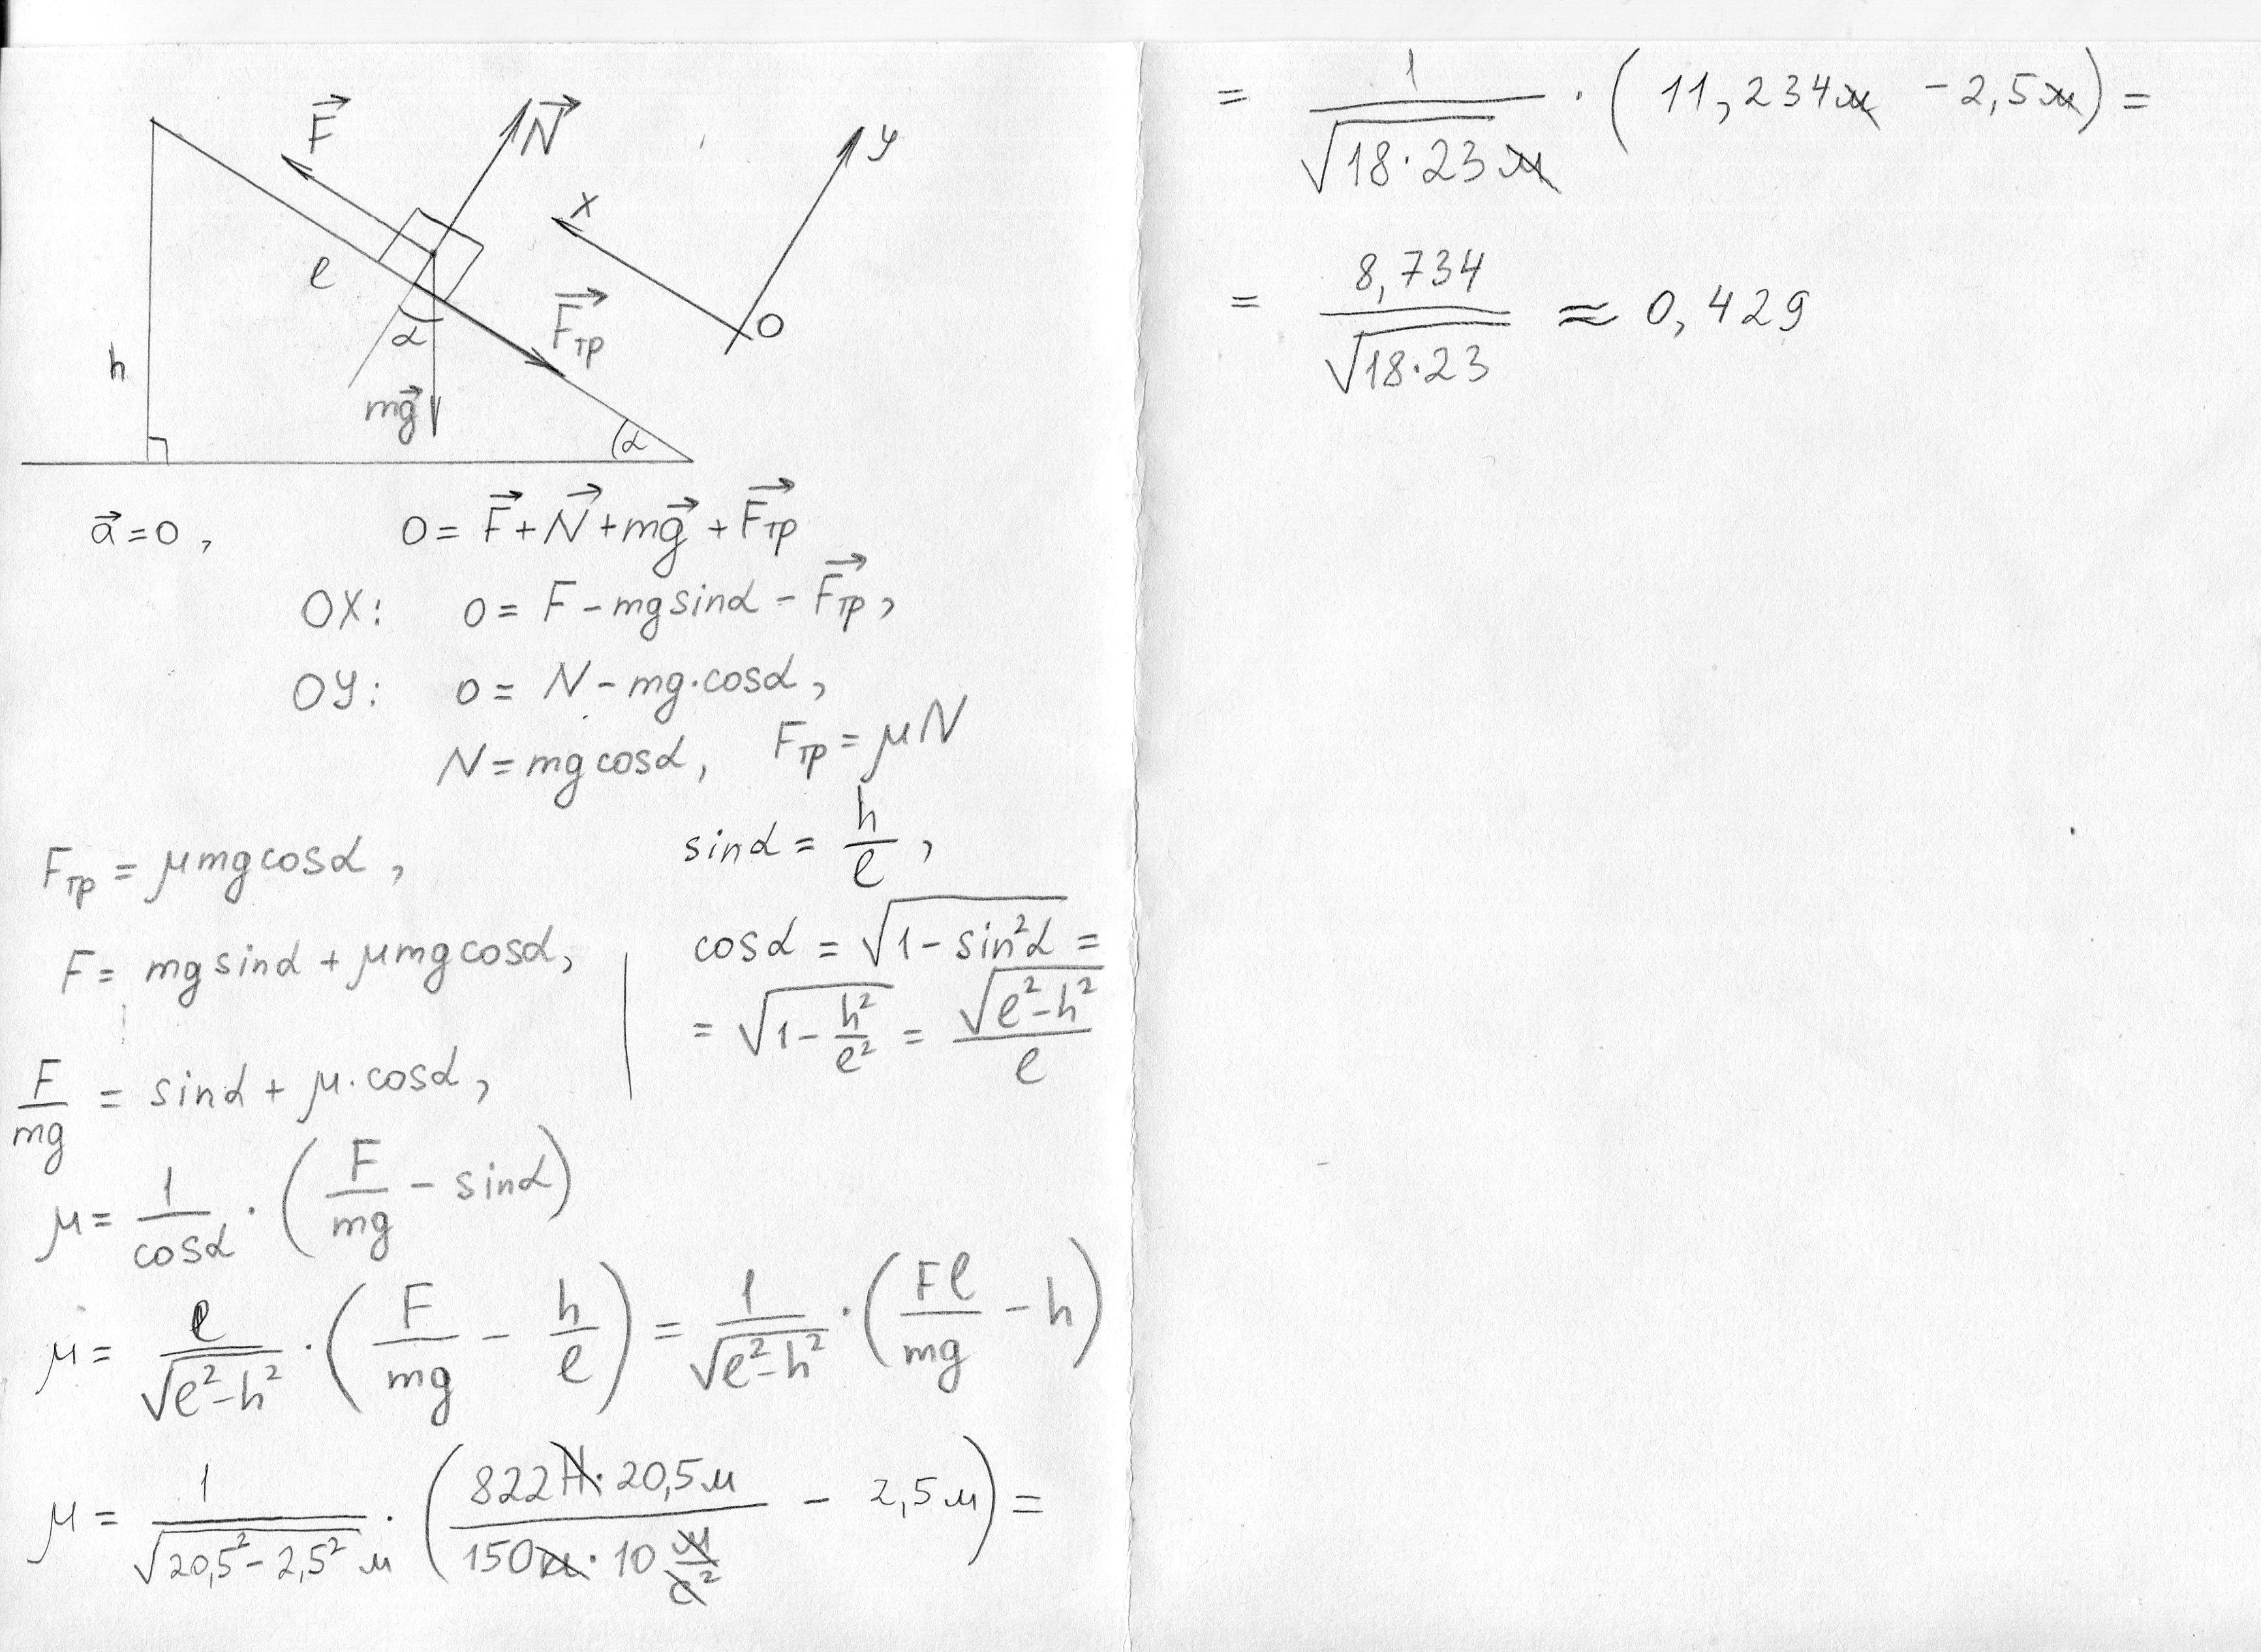 F⃗
N⃗
y
x
l
F⃗тр
O
h
α
mg⃗
α
a⃗ = 0 , 0 = F⃗ + N⃗ + mg⃗ + F⃗тр
OX: 0 = F - mg sinα - F⃗тр ,
OY: 0 = N - mg·cosα ,
N = mg cosα , Fтр = μN
Fтр = μmg cosα , sinα = h/l ,
F = mg sinα + μmg cosα , | cosα = √(1 - sin²α) =
= √(1 - h²/l²) = √(l² - h²)/l
F/mg = sinα + μ·cosα ,
μ = 1/cosα · (F/mg - sinα)
μ = l/√(l² - h²) · (F/mg - h/l) = 1/√(l² - h²) · (Fl/mg - h)
μ = 1/(√(20,5² - 2,5²) м) · (822Н · 20,5м/(150кг · 10 м/с²) - 2,5м) =
= 1/(√(18·23) м) · (11,234м - 2,5м) =
= 8,734/√(18·23) ≈ 0,429